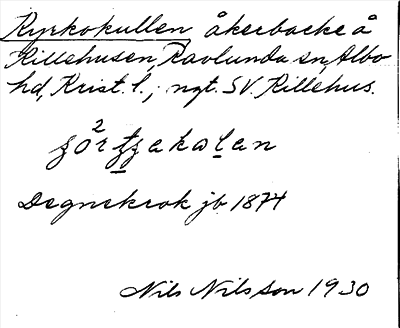 Kyrkokullen åkerbacke å
Killehusen, Ravlunda sn, Albo
hd, Krist. l.; ngt. SV. Killehus.
Degnekrok jb 1874
Nils Nilsson 1930